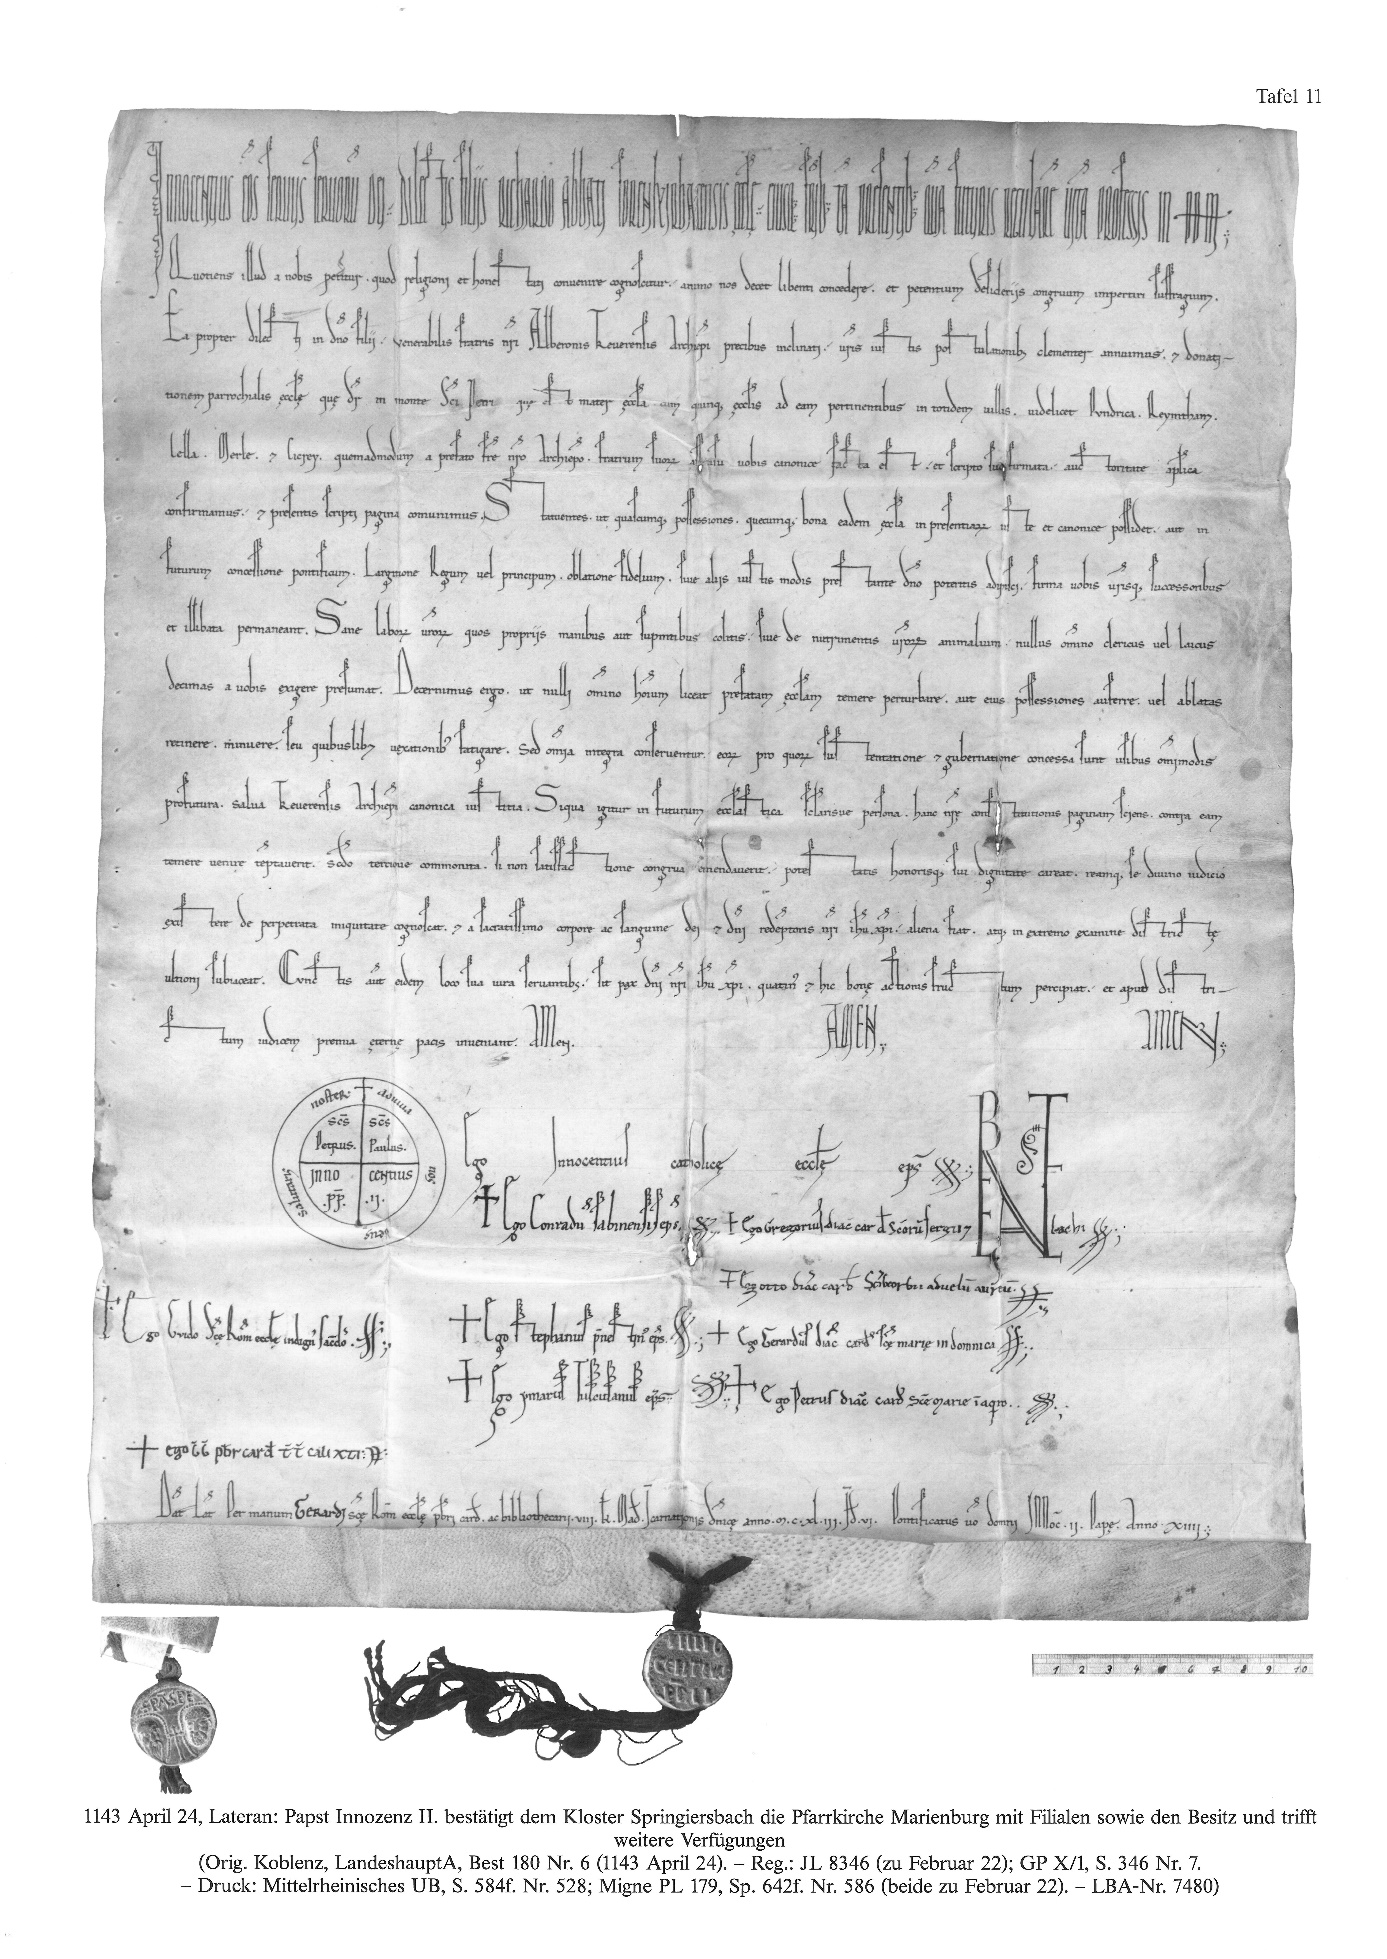 Tafel 11
Innocentius ep̅s seruus seruorū dei. Dilectis filiis Richardo abbati
Quotiens illud a nobis petitur. quod religioni et honestati conuenire cognoscitur. animo nos decet libenti concedere. et petentium desideriis congruum impertiri suffragium.
Ea propter dilecti in dn̅o filii. uenerabilis fratris nr̅i Alberonis Treuerensis Archiep̅i precibus inclinati. ur̅is iustis postulationib; clementer annuimus. ⁊ donati-
tionem parrochialis eccl̅ę quę dr̅ in monte Sc̅i Petri quę est mater eccl̅a cum quinq; eccl̅is ad eam pertinentibus in totidem uillis. uidelicet Kundrica. Keymtham.
Lella. Merle. ⁊ quemadmodum a prefato fr̅e nr̅o Archiep̅o. fratrum suoꝝ uobis canonice facta est. et scripto suo firmata. auctoritate ap̅lica
confirmamus. ⁊ presentis scripti pagina communimus. Statuentes. ut quascumq; possessiones. quecumq; bona eadem eccl̅a in presentiaꝝ iuste et canonice possidet. aut in
futurum concessione pontificum. Largitione Regum uel principum. oblatione fidelium. siue aliis iustis modis prestante dn̅o poterit adipisci. firma uobis ur̅isq; successoribus
et illibata permaneant. Sane laboꝝ ur̅oꝝ quos propriis manibus aut sumptibus colitis. siue de nutrimentis ur̅oꝝ animalium. nullus om̅ino clericus uel laicus
decimas a uobis exigere presumat. Decernimus ergo. ut nulli om̅ino hom̅inum liceat prefatam eccl̅am temere perturbare. aut eius possessiones auferre. uel ablatas
retinere. minuere. seu quibuslib; uexationib; fatigare. Sed om̅ia integra conseruentur. eoꝝ pro quoꝝ sustentatione ⁊ gubernatione concessa sunt usibus om̅imodis
profutura. salua Treuerensis Archiep̅i canonica iustitia. Siqua igitur in futurum eccl̅astica sc̅larisue persona. hanc nr̅ę constitutionis paginam sciens. contra eam
temere uenire te̅ptauerit. sc̅do tertioue commonita. si non satisfactione congrua emendauerit. potestatis honorisq; sui dignitate careat. reamq; se diuino iudicio
existere de perpetrata iniquitate cognoscat. ⁊ a sacratissimo corpore ac sanguine dei ⁊ dn̅i rede̅ptoris nr̅i ihu̅ xp̅i. aliena fiat. atq; in extremo examine districtę
ultioni subiaceat. Cunctis aut̅ eidem loco sua iura seruantib;. sit pax dn̅i nr̅i ihu̅ xp̅i. quatin' ⁊ hic bonę actionis fructum percipiat. et apud distri-
ctum iudicem premia ęternę pacis inueniant. AMen. AMEN. AMEN.
Adiuua nos salutaris noster
Sc̅s Petrus. Sc̅s Paulus.
Innocentius .pp̅. .ii.
Ego Innocentius catholicę eccl̅ę ep̅s
BENEVALETE
+ Ego Conradus sabinensis ep̅s.
+ Ego Gregorius diac̅ card̅ Sc̅oru̅ sergii ⁊ bachi
+ Ego otto diac̅ card̅ Sc̅i Georgii ad uelu̅ aureu̅.
+ Ego Guido Sc̅ę Rom̅ eccl̅ę indign' sac̅dos.
+ Ego Stephanus pr̅nest̅in' ep̅s.
+ Ego Gerardus diac̅ card̅ sc̅ę marię in domnica
+ Ego ymarus Tusculanus ep̅s
+ Ego Petrus diac̅ card̅ sc̅e Marie i̅ aq̅ro.
+ ego pb̅r card̅ calixti
Dat̅ Lat̅ Per manum GERARDI sc̅ę Rom̅ eccl̅ę pb̅ri card̅. ac bibliothecarii .viii. kl̅. Mad̅. Incarnationis dn̅icę anno .m.c.xl.iii. Ind̅.vi. Pontificatus uo̅ domni INNOC̅.ii. Papę. Anno .xiiii.
SPASPE
INNO
CENTIVS
PP II
1 2 3 4 5 6 7 8 9 10
1143 April 24, Lateran: Papst Innozenz II. bestätigt dem Kloster Springiersbach die Pfarrkirche Marienburg mit Filialen sowie den Besitz und trifft
weitere Verfügungen
(Orig. Koblenz, LandeshauptA, Best 180 Nr. 6 (1143 April 24). – Reg.: JL 8346 (zu Februar 22); GP X/1, S. 346 Nr. 7.
– Druck: Mittelrheinisches UB, S. 584f. Nr. 528; Migne PL 179, Sp. 642f. Nr. 586 (beide zu Februar 22). – LBA-Nr. 7480)